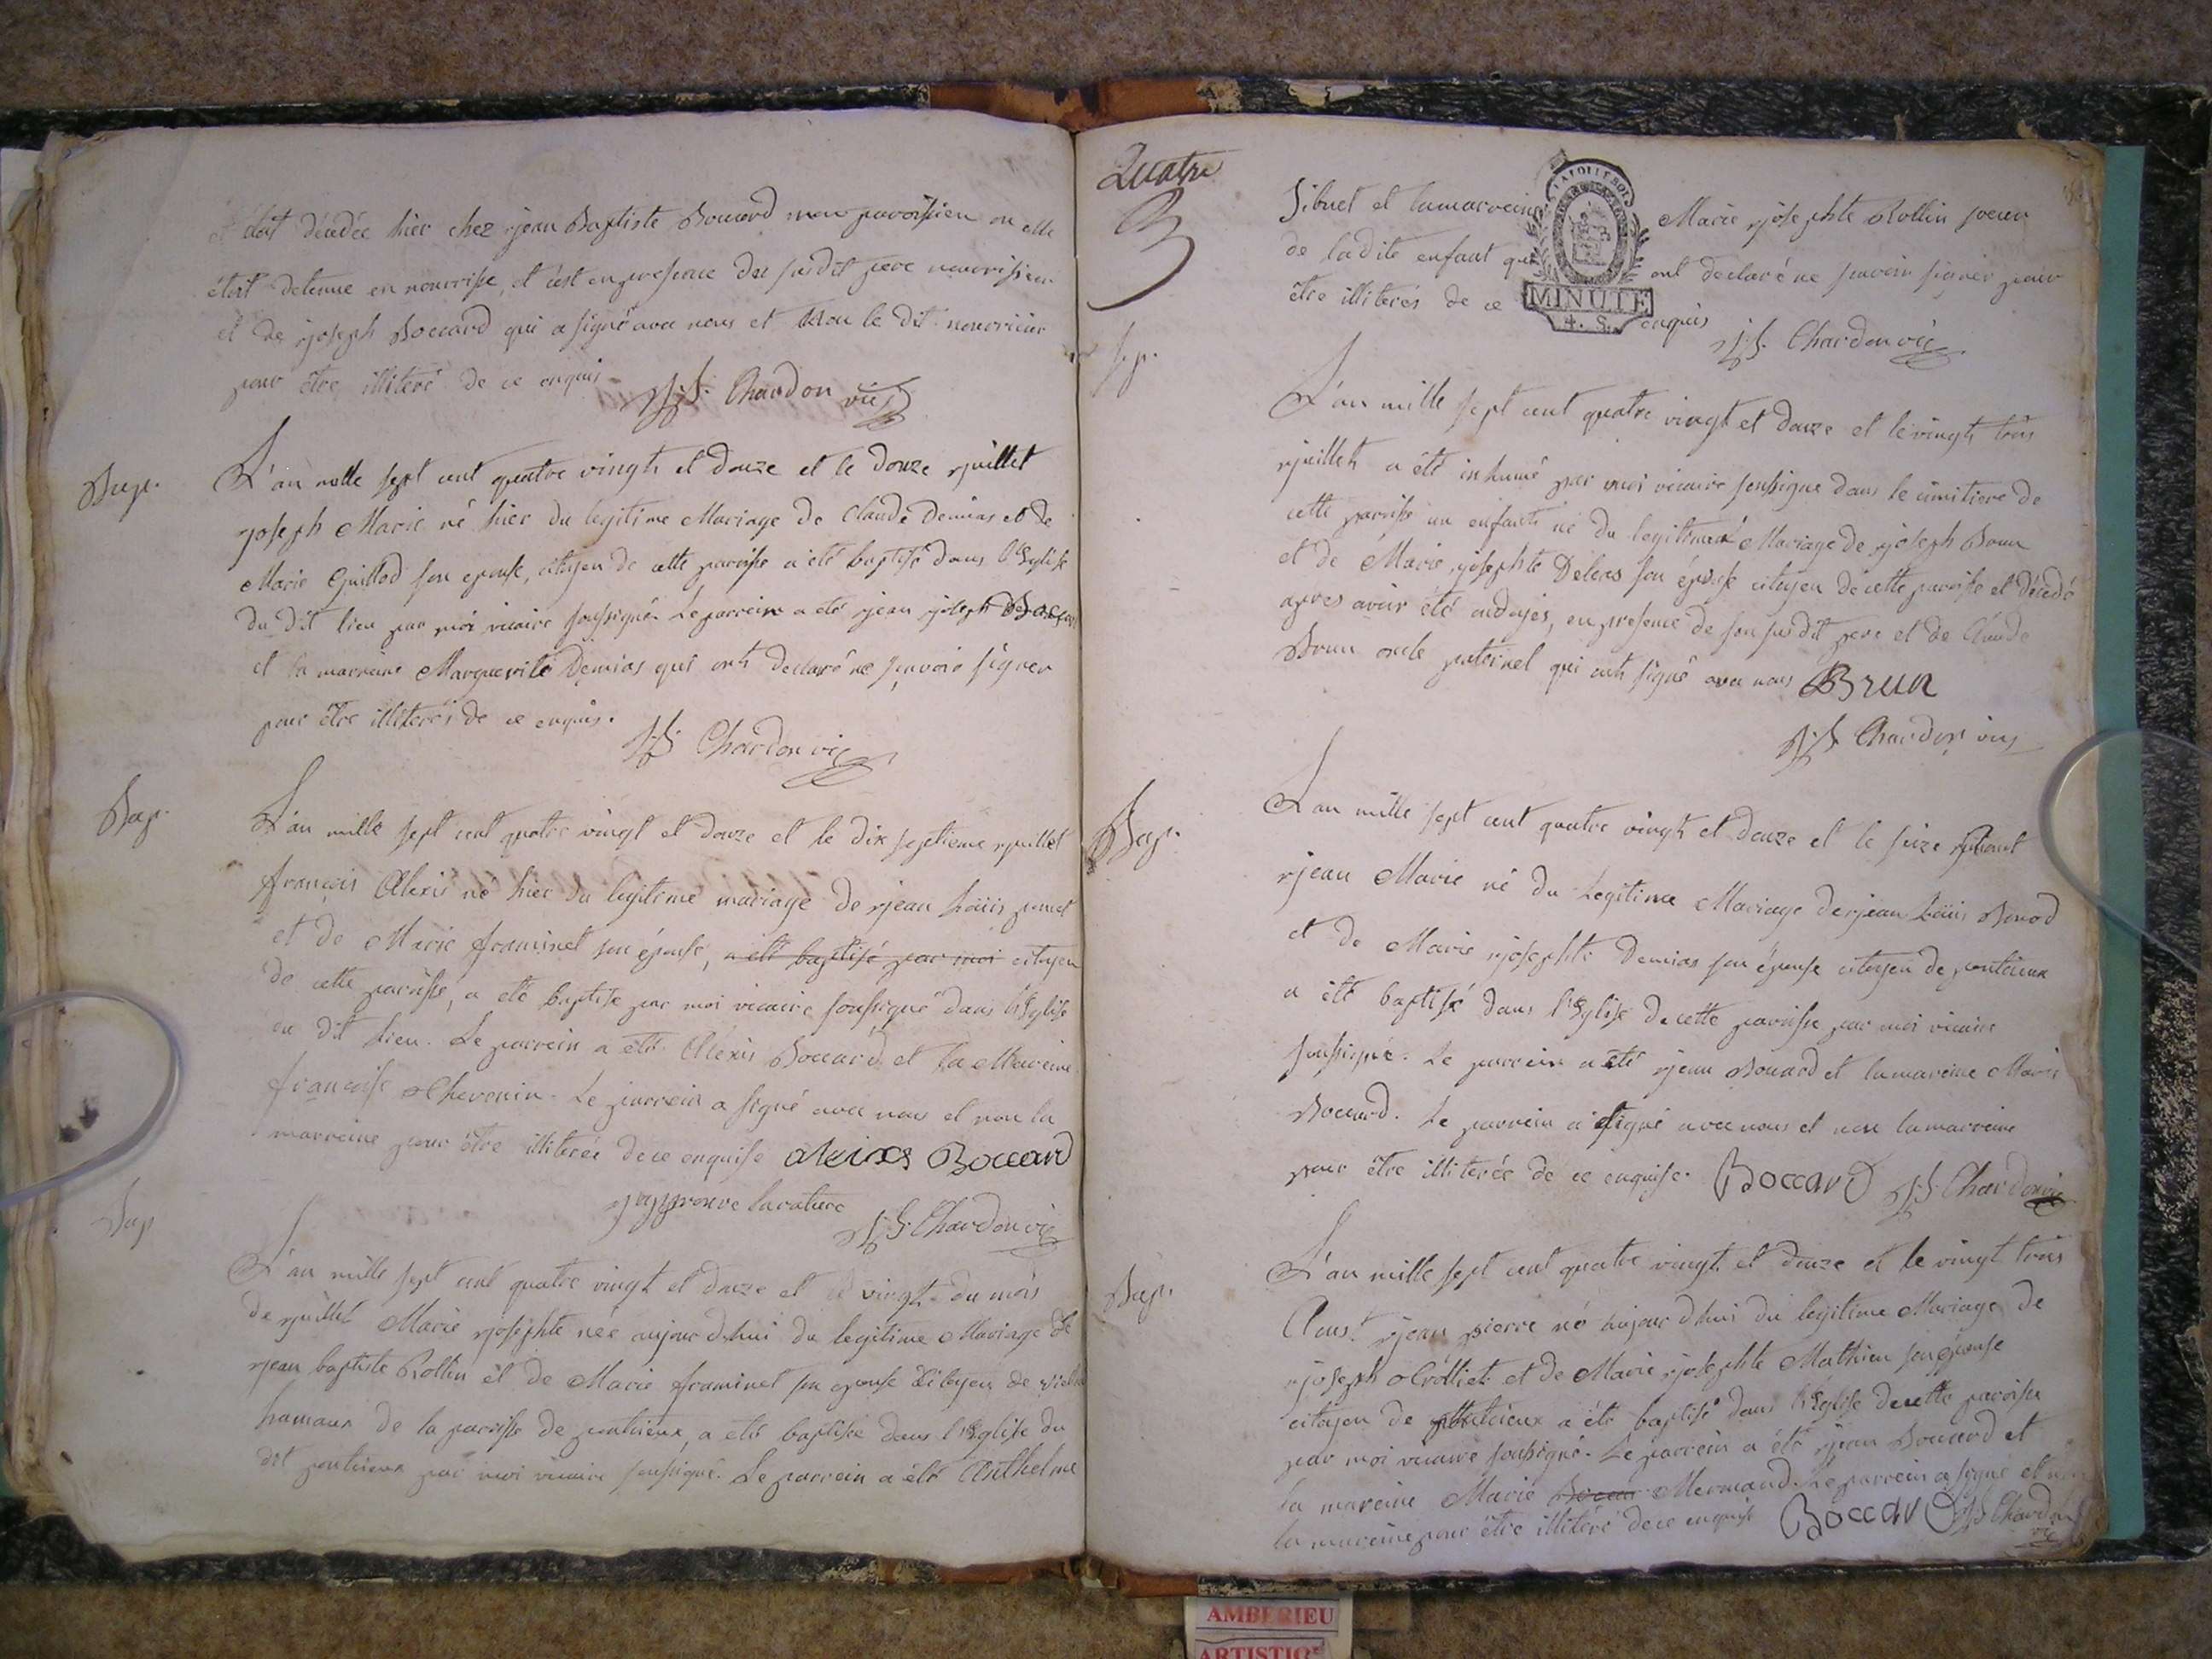 était décédée hier chez jean Baptiste Boccard mon paroissien ou elle
étoit detenue en nourrisse, et c'est en presence du susdit pere nourrissier
et de joseph Boccard qui a signé avec nous et non le dit nourricier
pour être illiteré de ce enquis J. S. Chardon vic
Bap.
L'an mille sept cent quatre vingt et douze et le douze juillet
joseph Marie né hier du legitime Mariage de Claude Demias et de
Marie Guillod son epouse, citoyen de cette paroisse a été baptisé dans l'Eglise
du dit lieu par moi vicaire soussigné. Le parrein a eté jean joseph
et la marreine Marguerite Demias qui ont declaré ne sçavoir signer
pour être illiterés de ce enquis. J. S. Chardon vic
Bap.
L'an mille sept cent quatre vingt et douze et le dix septieme juillet
françois Alexis né hier du legitime mariage de jean Loüis
et de Marie framinet son épouse, a eté baptisé par moi citoyen
de cette paroisse, a eté baptisé par moi vicaire soussigné dans l'Eglise
du dit lieu. Le parrein a eté Alexis Boccard et la Mareine
françoise Chevenin. Le parrein a signé avec nous et non la
marreine pour être illiterée de ce enquise aleixs Boccard
japprouve la rature J. S. Chardon vic
Bap
L'an mille sept cent quatre vingt et douze et le vingt du mois
de juillet Marie josephte née aujourd'hui du legitime Mariage de
jean baptiste Rollin et de Marie framinet son epouse citoyen de
hamaux de la paroisse de pontieux, a eté baptisée dans l'Eglise du
dit pontieux par moi vicaire soussigné. Le parrein a été Anthelme
Quatre
Sibuet et la marreine Marie josephte Rollin soeur
de ladite enfant qui ont declaré ne sçavoir signer pour
être illiterés de ce enquis J. S. Chardon vic
LA LOI LE ROI
MINUTE
4. S.
Sep.
L'an mille sept cent quatre vingt et douze et le vingt trois
juillet a été inhumé par moi vicaire soussigné dans le cimitiere de
cette paroisse un enfant né du legitime Mariage de joseph Brun
et de Marie josephte Deleas son épouse citoyen de cette paroisse et décedé
apres avoir été ondoyés, en presence de son susdit pere et de Claude
Brun oncle paternel qui ont signé avec nous Brun
J. S. Chardon vic
Bap.
L'an mille sept cent quatre vingt et douze et le seize aoust
jean Marie né du Legitime Mariage de jean Loüis Benod
et de Marie josephte Demias son épouse citoyen de pontieux
a été baptisé dans l'Eglise de cette paroisse par moi vicaire
soussigné. Le parrein a eté jean Boccard et la mareine Marie
Boccard. Le parrein a signé avec nous et non la marreine
pour être illiterée de ce enquise. Boccard J. S. Chardon vic
Bap.
L'an mille sept cent quatre vingt et douze et le vingt trois
Aoust jean pierre né aujourd'hui du legitime Mariage de
joseph et de Marie josephte Mathieu son épouse
citoyen de pontieux a été baptisé dans l'Eglise de cette paroisse
par moi vicaire soussigné. Le parrein a été jean Boccard et
la mareine Marie Boccar Mermand. Le parrein a signé et non
la mareine pour être illiteré de ce enquise Boccard J. S. Chardon vic
AMBERIEU
ARTISTIQUE